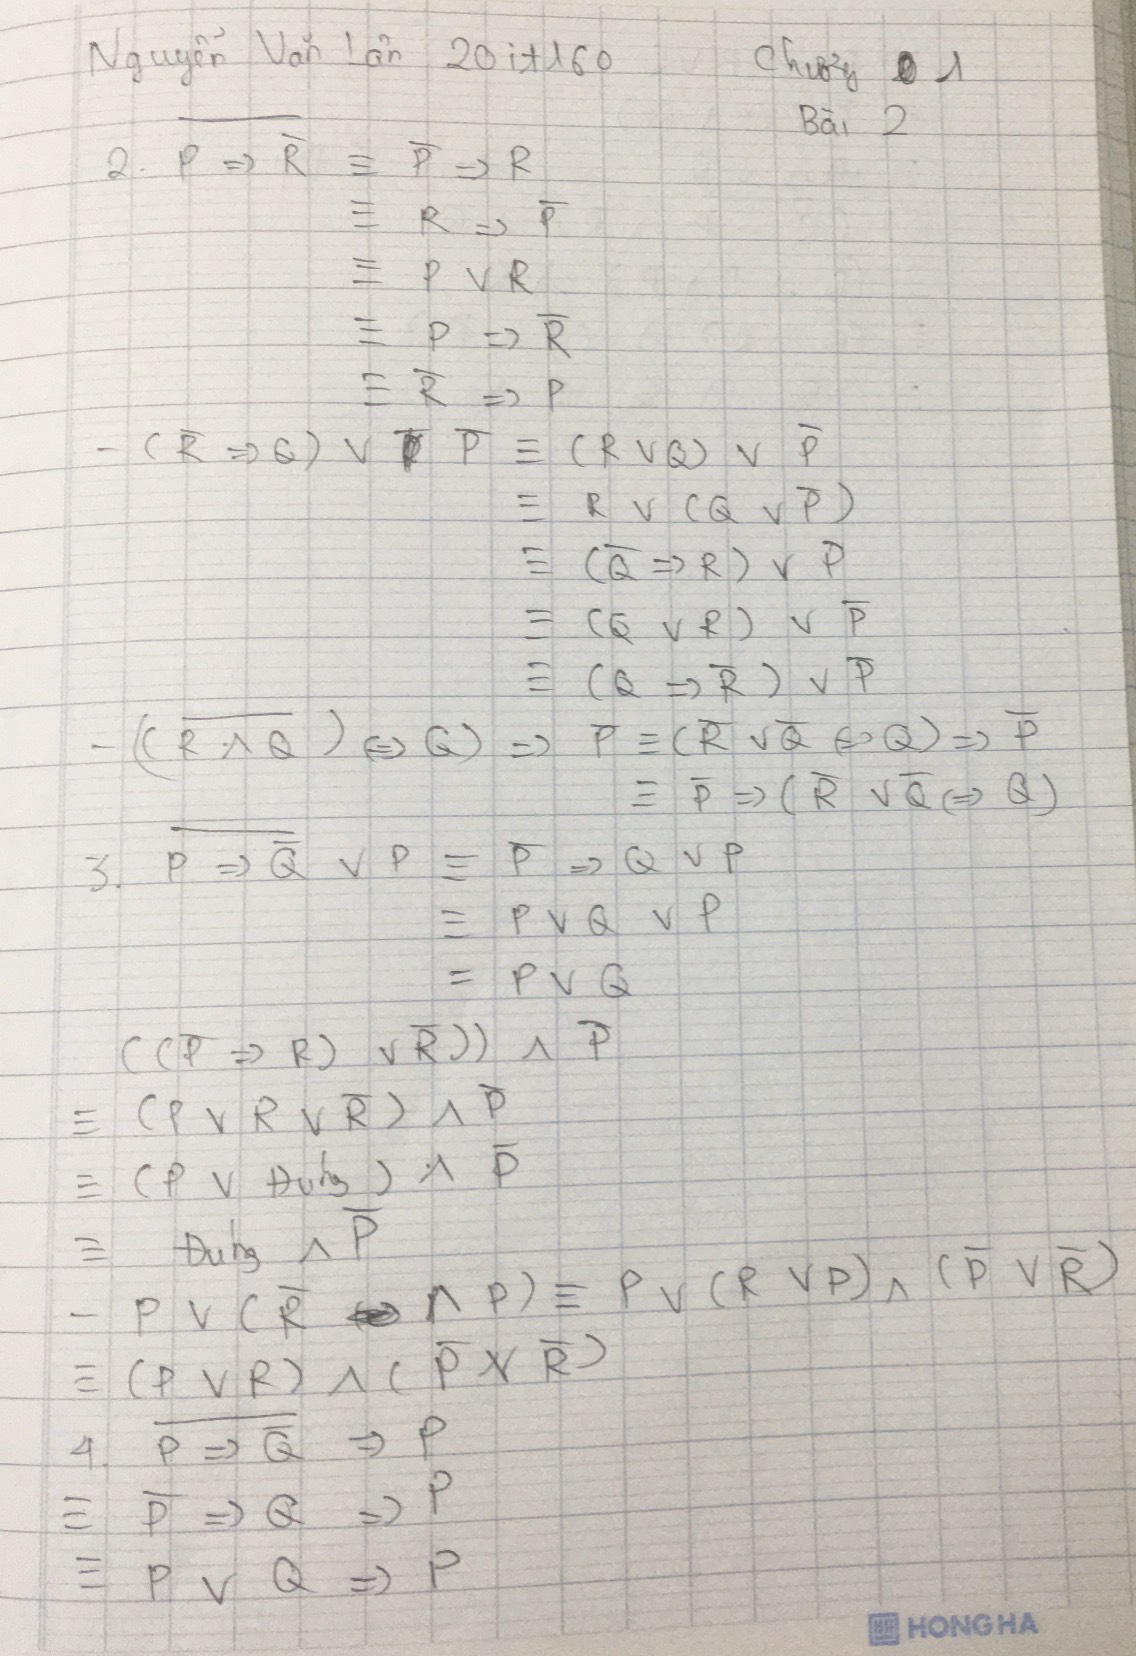 Nguyễn Văn Lân 20it160 Chương 1
Bài 2
2. \overline{P => \overline{R}} ≡ \overline{P} => R
≡ R => \overline{P}
≡ P ∨ R
≡ P => \overline{R}
≡ \overline{R} => P
- (\overline{R} => Q) ∨ \overline{P} ≡ (R ∨ Q) ∨ \overline{P}
≡ R ∨ (Q ∨ \overline{P})
≡ (\overline{Q} => R) ∨ \overline{P}
≡ (Q ∨ R) ∨ \overline{P}
≡ (Q => \overline{R}) ∨ \overline{P}
- ((\overline{R ∧ Q}) <=> Q) => \overline{P} ≡ (\overline{R} ∨ \overline{Q} <=> Q) => \overline{P}
≡ \overline{P} => (\overline{R} ∨ \overline{Q} <=> Q)
3. \overline{P => \overline{Q}} ∨ P ≡ \overline{P} => Q ∨ P
≡ P ∨ Q ∨ P
= P ∨ Q
((\overline{P} => R) ∨ \overline{R})) ∧ \overline{P}
≡ (P ∨ R ∨ \overline{R}) ∧ \overline{P}
≡ (P ∨ Đúng) ∧ \overline{P}
≡ Đúng ∧ \overline{P}
- P ∨ (\overline{R} ∧ P) ≡ P ∨ (R ∨ P) ∧ (\overline{P} ∨ \overline{R})
≡ (P ∨ R) ∧ (\overline{P} ∨ \overline{R})
4. \overline{P => \overline{Q}} => P
≡ \overline{P} => Q => P
≡ P ∨ Q => P
HONG HA